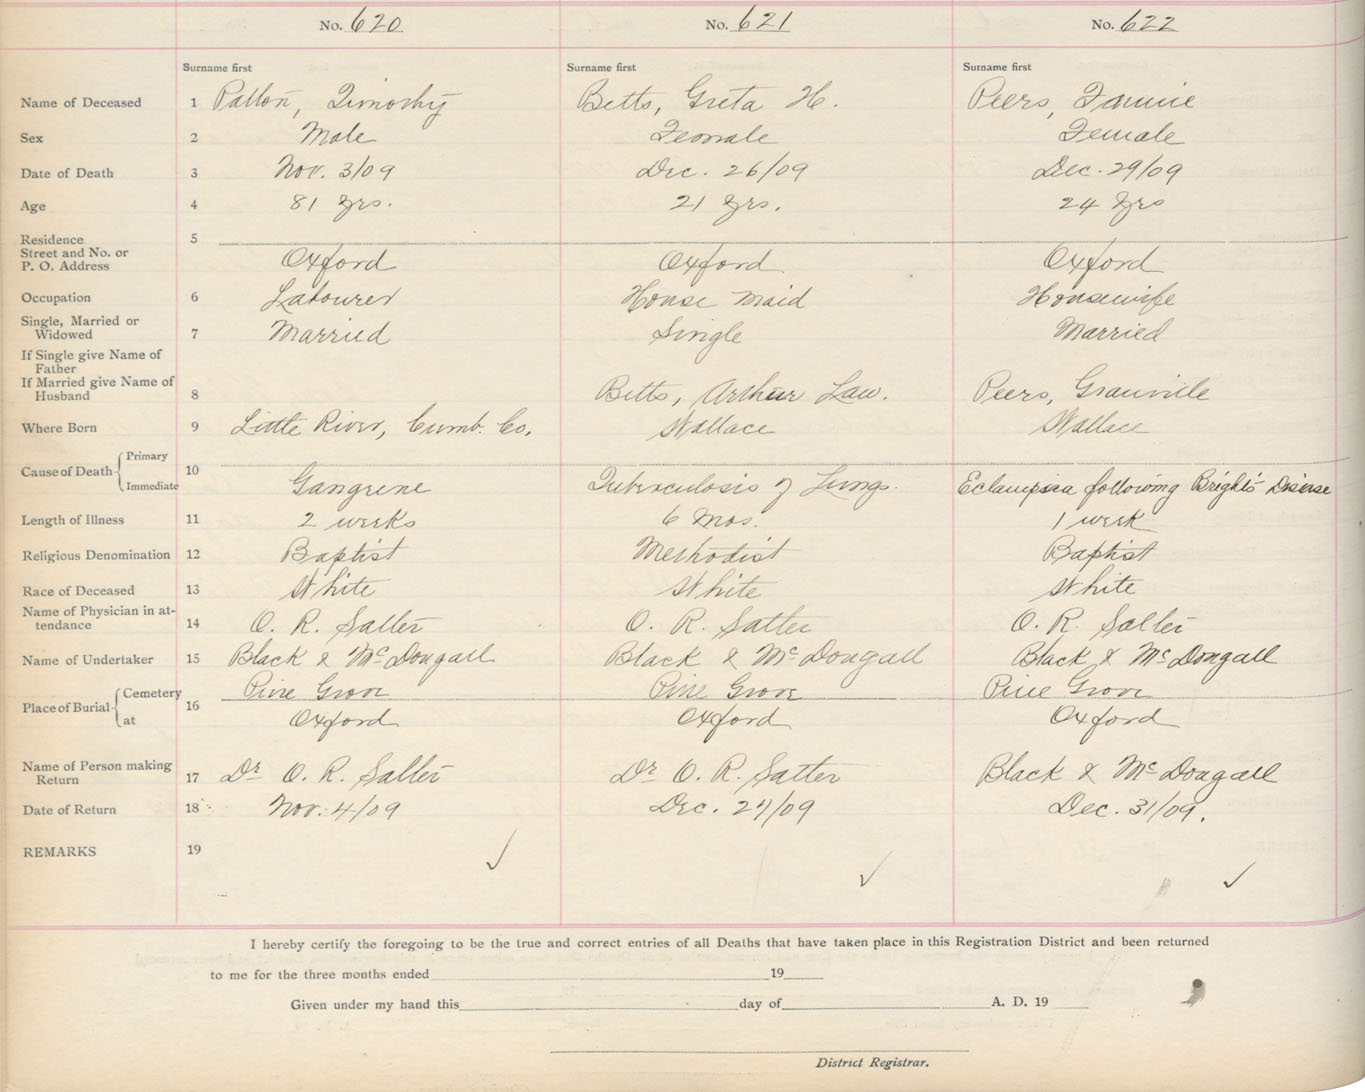 No. 620 No. 621 No. 622
Surname first Surname first Surname first
Name of Deceased 1 Patton, Timothy Betts, Greta H. Peers, Fannie
Sex 2 Male Female Female
Date of Death 3 Nov. 3/09 Dec. 26/09 Dec. 29/09
Age 4 81 yrs. 21 yrs. 24 yrs
Residence 5
Street and No. or
P. O. Address Oxford Oxford Oxford
Occupation 6 Labourer House maid Housewife
Single, Married or
Widowed 7 Married Single Married
If Single give Name of
Father
If Married give Name of
Husband 8 Betts, Arthur Law. Peers, Granville
Where Born 9 Little River, Cumb. Co. Wallace Wallace
Primary
Cause of Death 10
Immediate Gangrene Tuberculosis of Lungs. Eclampsia following Bright's Disease
Length of Illness 11 2 weeks 6 mos. 1 week
Religious Denomination 12 Baptist Methodist Baptist
Race of Deceased 13 White White White
Name of Physician in at-
tendance 14 O. R. Salter O. R. Salter O. R. Salter
Name of Undertaker 15 Black & McDougall Black & McDougall Black & McDougall
Cemetery Pine Grove Pine Grove Pine Grove
Place of Burial 16
at Oxford Oxford Oxford
Name of Person making
Return 17 Dr O. R. Salter Dr O. R. Salter Black & McDougall
Date of Return 18 Nov. 4/09 Dec. 27/09 Dec. 31/09.
REMARKS 19 ✓ ✓ ✓
I hereby certify the foregoing to be the true and correct entries of all Deaths that have taken place in this Registration District and been returned
to me for the three months ended 19
Given under my hand this day of A. D. 19
District Registrar.